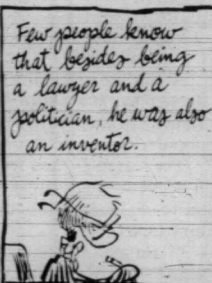 Few people know
that besides being
a lawyer and a
politician, he was also
an inventor.